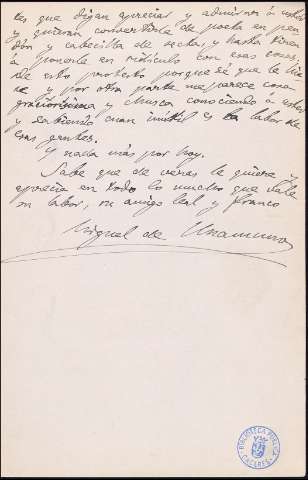 tes que digan apreciar y admirar á usted
y quieran convertirle de poeta en pen
dón y cabecilla de secta, y hasta tiren
á ponerle en ridículo con esas cosas.
De esto protesto porque sé que le
y por otra parte me parece cosa
graciosísima y chusca conociendo á usted
y sabiendo cuan inutil es la labor de
esas gentes.
Y nada más por hoy.
Sabe que de veras le quiere y
aprecia en todo lo mucho que vale
su labor, su amigo leal y franco
Miguel de Unamuno
BIBLIOTECA PÚBLICA
CÁCERES